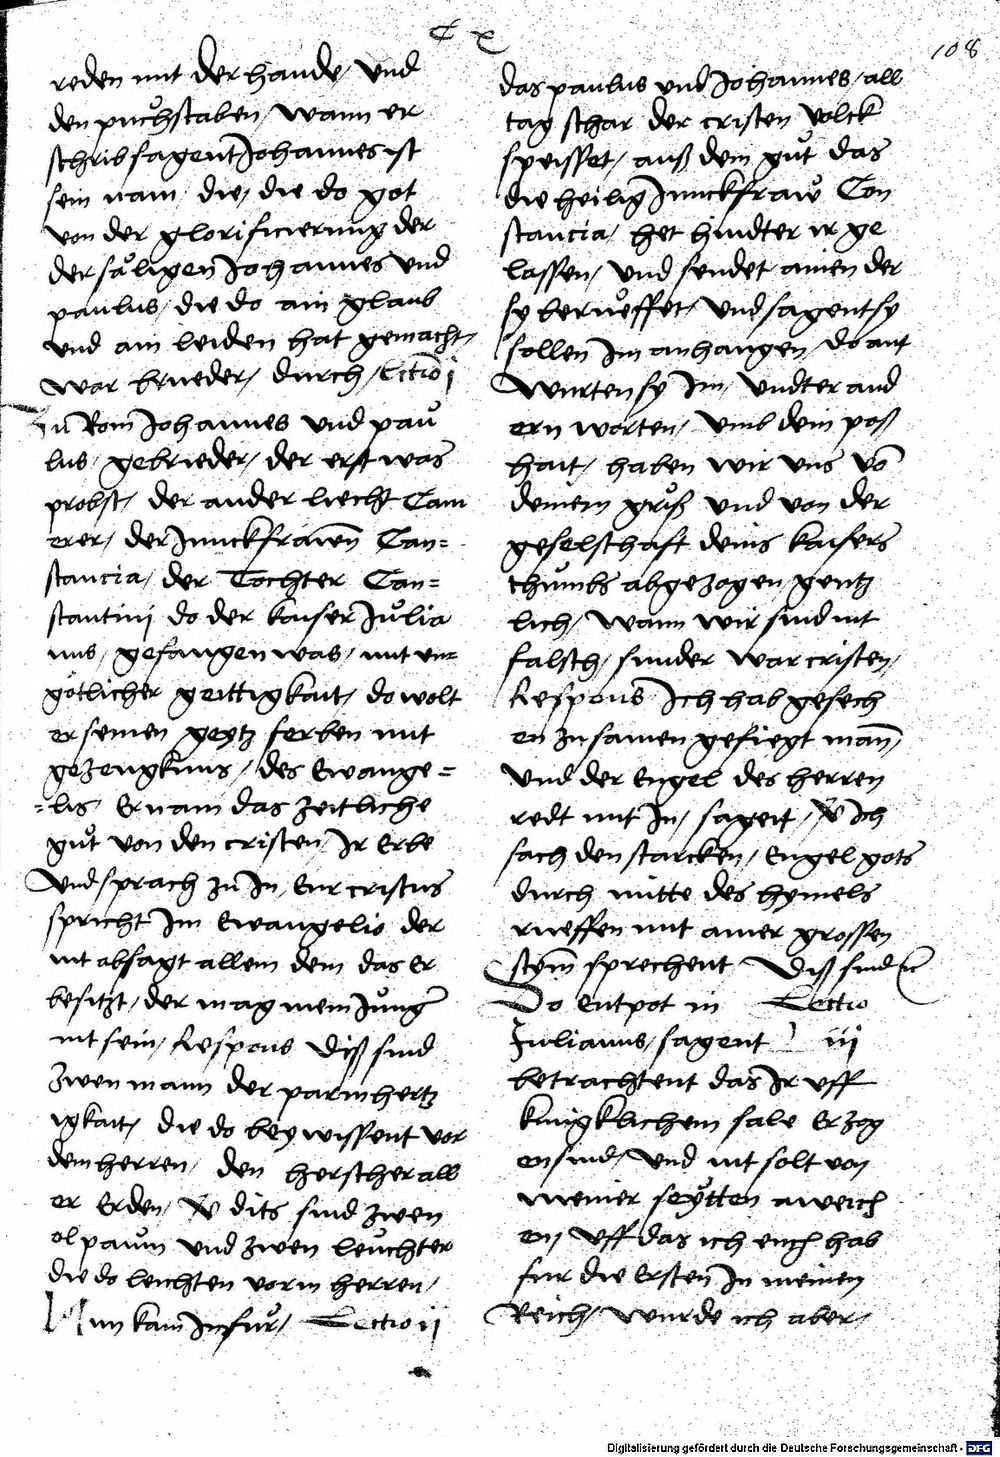 C x
108
reden mit der hande / Und
den puͦchstaben / wann er
schrib sagent Johannes ist
sein nam / die / die do got
von der glorificierung der
der saͤligen Johannes und
paulus / die do ain glaub
und ain leiden hat gemacht /
war brueder / durch / lectio j
Zu Rom Johannes und pau
lus / gebrieder / der erst was
probst / der ander liecht Cam
erer / der Junckfrawen Con=
stancia / der Tochter Con=
stantini do der kaiser Julia
nus / gefangen was / mit un=
goͤtlicher geittigkait / do wolt
er seinen geytz ferben mit
gezeugknus / des Ewange=
=lis Er nam das zeitliche
guͦt von den cristen / Ir Erbe
Und sprach zu In / Eur cristus
spricht Im Ewangelio der
nit absagt allem dem das er
besitzt / der mag mein Junger
nit sein / Respons Diß sind
zwen mann der parmhertz
igkait / die do bey wissent vor
dem herren / den herscher all
er Erden / V dits sind zwen
olpaum und zwen leuchter
die do leichten vorm herren /
Nun kam Infur / Lectio ij
das paulus und Johannes / all
tag schar der cristen Volck
speisset / auß dem guͦt das
die heilig Junckfraw Con
stancia / het hindter ir ge
lassen / Und sendet ainen der
sy beruͤffet / Und sagent sy
sollen Im anhangen / do ant
Wurten sy Im / Undter and
ern worten / Umb dein poß
hait / haben wir uns vō
deinem gruͦß und von der
geselschaft deins kaisers
thumbs abgezogen / gentz
lich / Wann wir sind nit
falsch / sunder war cristen /
Respons Ich hab gesech
en zu samen gefiegt mann /
Und der Engel des herren
redt mit In / sagent / V Ich
sach den starcken / Engel gots
durch mitte des hymels
rueffen mit ainer grossen
stym sprechent / Diß sind rc
Do entpot in Lectio
Julianus / sagent iij
betrachtent das Ir uff
kunigklichem sale Erzog
en sind / Und nit solt von
meiner seytten aweich
en / Uff das ich euch hab
fur die Ersten In meinem
Reich / Wurde ich aber /
Digitalisierung gefördert durch die Deutsche Forschungsgemeinschaft - DFG